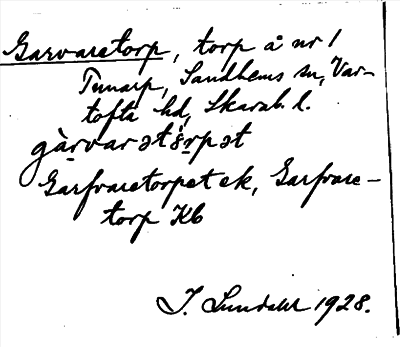 Garvaretorp, torp å nr 1
Tunarp, Sandhems sn, Var-
tofta hd, Skarab. l.
gàrvarətårpət
Garfvaretorpet ek, Garfvare-
torp Kb
J. Lundahl 1928.